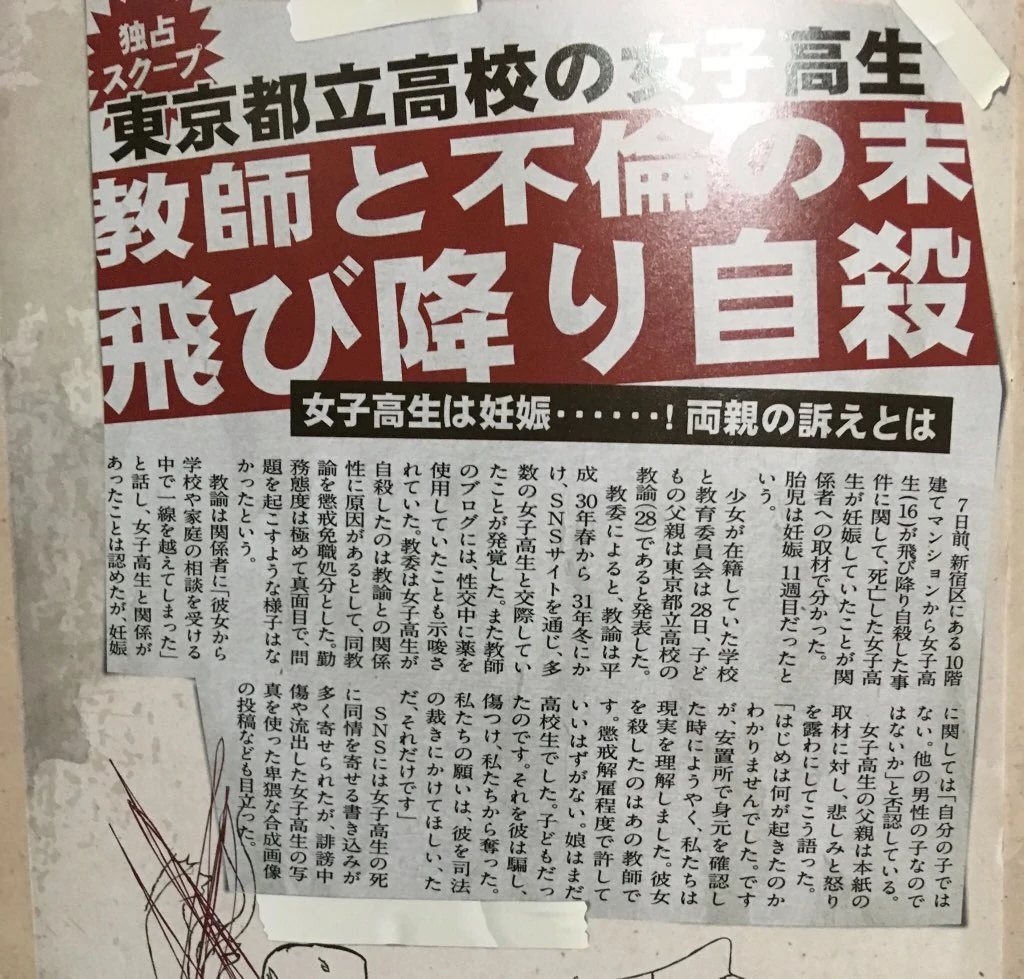 独占
スクープ
東京都立高校の女子高生
教師と不倫の末
飛び降り自殺
女子高生は妊娠・・・・・・! 両親の訴えとは
7日前、新宿区にある10階
建てマンションから女子高
生(16)が飛び降り自殺した事
件に関して、死亡した女子高
生が妊娠していたことが関
係者への取材で分かった。
胎児は妊娠、11週目だったと
いう。
少女が在籍していた学校
と教育委員会は28日、子ど
もの父親は東京都立高校の
教諭(28)であると発表した。
教委によると、教諭は平
成 30年春から 31年冬にか
け、SNSサイトを通じ、多
数の女子高生と交際してい
たことが発覚した。また教師
のブログには、性交中に薬を
使用していたことも示唆さ
れていた。教委は女子高生が
自殺したのは教諭との関係
性に原因があるとして、同教
諭を懲戒免職処分とした。勤
務態度は極めて真面目で、問
題を起こすような様子はな
かったという。
教諭は関係者に「彼女から
学校や家庭の相談を受ける
中で一線を越えてしまった」
と話し、女子高生と関係が
あったことは認めたが、妊娠
に関しては「自分の子では
ない。他の男性の子なので
はないか」と否認している。
女子高生の父親は本紙の
取材に対し、悲しみと怒り
を露わにしてこう語った。
「はじめは何が起きたのか
わかりませんでした。です
が、安置所で身元を確認し
た時にようやく、私たちは
現実を理解しました。彼女
を殺したのはあの教師で
す。懲戒解雇程度で許して
いいはずがない。娘はまだ
高校生でした。子どもだっ
たのです。それを彼は騙し、
傷つけ、私たちから奪った。
私たちの願いは、彼を司法
の裁きにかけてほしい、た
だ、それだけです」
SNSには女子高生の死
に同情を寄せる書き込みが
多く寄せられたが、誹謗中
傷や流出した女子高生の写
真を使った卑猥な合成画像
の投稿なども目立った。